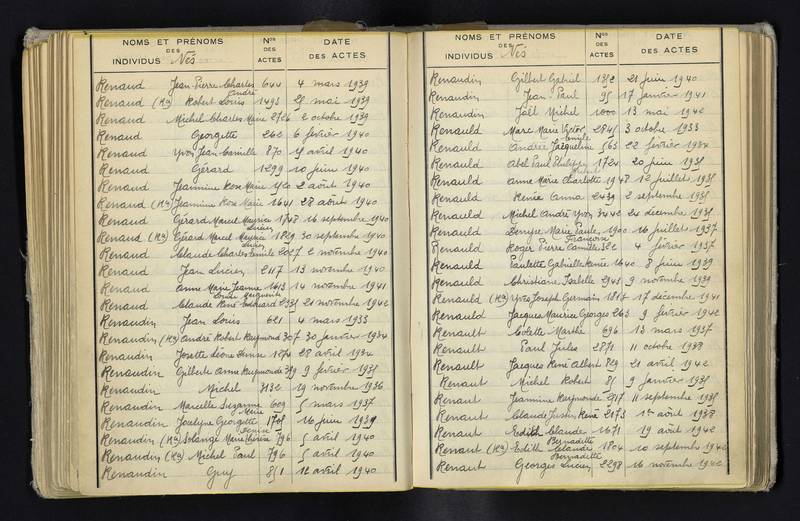 NOMS ET PRÉNOMS
DES
INDIVIDUS Nés
Nos
DES
ACTES
DATE
DES ACTES
Renaud Jean-Pierre Charles 644 4 mars 1939
André
Renaud (Ra) Robert Louis 1493 mai 1939
Renaud Michel Charles Marie 2726 2 octobre 1939
Renaud Georgette 262 6 février 1940
Renaud Yvon Jean-Camille 870 avril 1940
Renaud Gérard 1299 10 juin 1940
Renaud Jeannine Rose Marie 2 août 1940
Renaud (Ra) Jeannine Rose Marie 1641 28 août 1940
Renaud Gérard Marcel Maurice 1748 16 septembre 1940
Lucien
Renaud (Ra) Gérard Marcel Maurice 1829 30 septembre 1940
Lucien
Renaud Claude Charles Emile 2027 2 novembre 1940
Renaud Jean Lucien 2117 13 novembre 1940
Renaud Anne Marie Jeanne 1613 14 novembre 1941
Louise Marguerite
Renaud Claude René Edouard 21 novembre 1942
Renaudin Jean Louis 621 4 mars 1933
Renaudin (Ra) André Robert Raymond 307 30 janvier 1934
Renaudin Josette Léone Denise 1074 28 avril 1934
Renaudin Gilberte Anna Raymonde 9 février
Renaudin Michel 3132 19 novembre 1936
Renaudin Marcelle Suzanne 609 5 mars 1937
Marie
Renaudin Jocelyne Georgette 16 juin 1939
Denise
Renaudin (Ra) Solange Marie Thérèse 796 5 avril 1940
Renaudin (Ra) Michel Paul 796 5 avril 1940
Renaudin Guy 851 12 avril 1940
NOMS ET PRÉNOMS
DES
INDIVIDUS Nés
Nos
DES
ACTES
DATE
DES ACTES
Renaudin Gilbert Gabriel 1352 21 juin 1940
Renaudin Jean Paul 95 17 janvier 1941
Renaudin Joël Michel 1000 13 mai 1942
Renauld Marc Marie Victor 2845 3 octobre 1933
Emile
Renauld Andrée Jacqueline 563 22 février 1934
Renauld Abel Paul Philippe 1724 20 juin
Renauld Anne Marie Charlotte 1948 12 juillet
Renauld Renée Anna 2439 2 septembre
Renauld Michel André Yvon 3442 24 décembre
Renauld Denyse Marie Paule 1900 16 juillet 1937
Françoise
Renauld Roger Pierre Camille 4 février 1937
Renauld Paulette Gabrielle Renée 1640 8 juin 1939
Renauld Christiane Isabelle 2945 9 novembre 1939
Renauld (Ra) Yves Joseph Germain 17 décembre 1941
Renauld Jacques Maurice Georges 263 9 février 1942
Renault Colette Marthe 696 13 mars 1937
Renault Paul Jules 2871 11 octobre 1938
Renault Jacques René Albert 829 21 avril 1942
Renaut Michel Robert 85 9 janvier
Renaut Jeannine Raymonde 2517 11 septembre
Renaut Claude Justin René 2173 1er août 1938
Renaut Edith Claude 1671 19 avril 1942
Bernadette
Renaut (Ra) Edith Claude 1804 10 septembre 1942
Bernadette
Renaut Georges Lucien 2298 16 novembre 1942